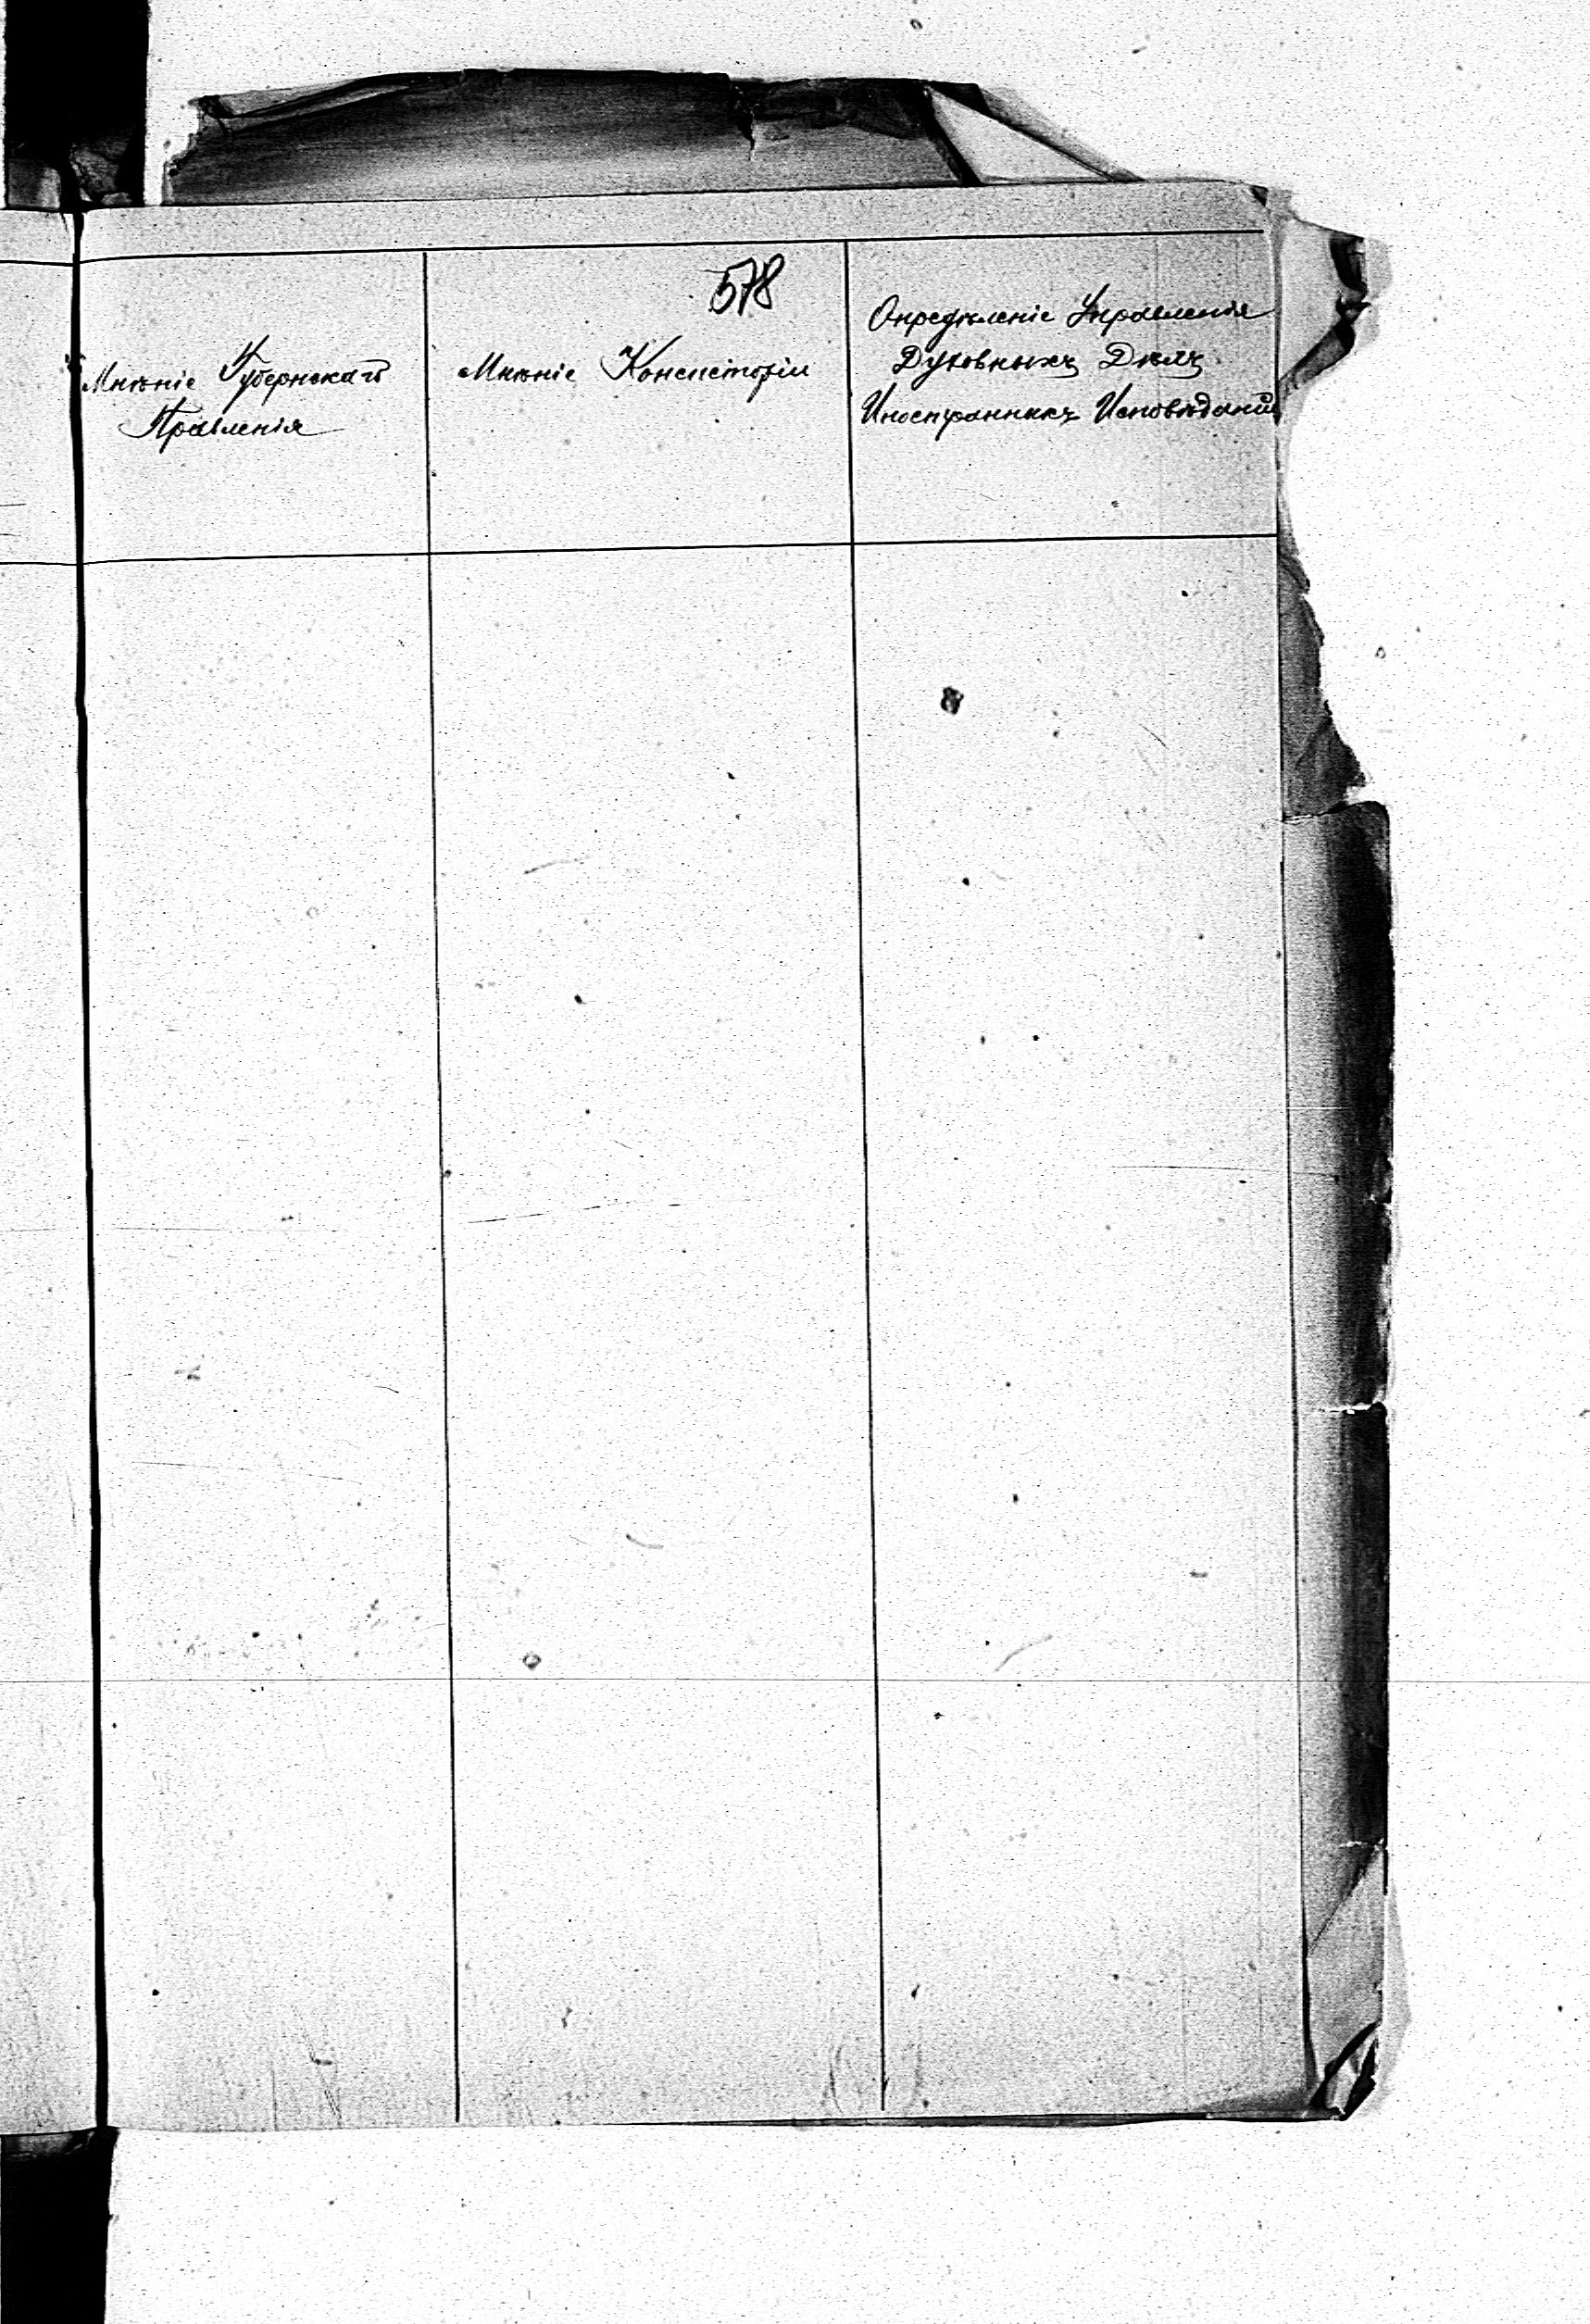 578
Мнѣніе Губернскаго
Правленія
Мнѣніе Консисторіи
Опредѣленіе Управленія
Духовныхъ Дѣлъ
Иностранныхъ Исповѣданій